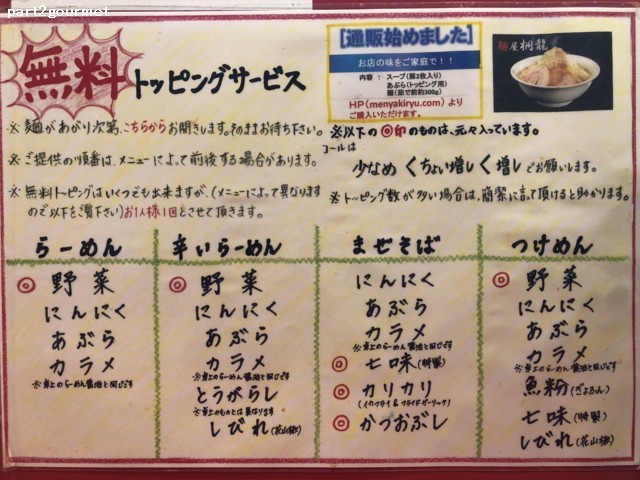 part2gourmet
無料
トッピングサービス
【通販始めました】
お店の味をご家庭で!!
内容:スープ(豚2枚入り)
あぶら(トッピング用)
麺(茹で前約300g)
HP(menyakiryu.com)より
ご購入いただけます。
麺屋桐龍
※麺があがり次第、こちらからお聞きします。そのままお待ち下さい。
※ご提供の順番は、メニューによって前後する場合があります。
※無料トッピングはいくつでも出来ますが、(メニューによって異なります
ので以下をご覧下さい)お1人様1回とさせて頂きます。
※以下の◎印のものは、元々入っています。
コールは
少なめくちょい増しく増しでお願いします。
※トッピング数が多い場合は、簡潔に言って頂けると助かります。
らーめん
◎野菜
にんにく
あぶら
カラメ
※卓上のらーめん醤油と同じです
辛いらーめん
◎野菜
にんにく
あぶら
カラメ
※卓上のらーめん醤油と同じです
とうがらし
※卓上のものとは異なります
しびれ(花山椒)
まぜそば
にんにく
あぶら
カラメ
※卓上のらーめん醤油と同じです
◎七味(特製)
◎カリカリ
(イカフライ&フライドガーリック)
◎かつおぶし
つけめん
◎野菜
にんにく
あぶら
カラメ
※卓上のらーめん醤油と同じです
魚粉(ぎょふん)
七味(特製)
しびれ(花山椒)